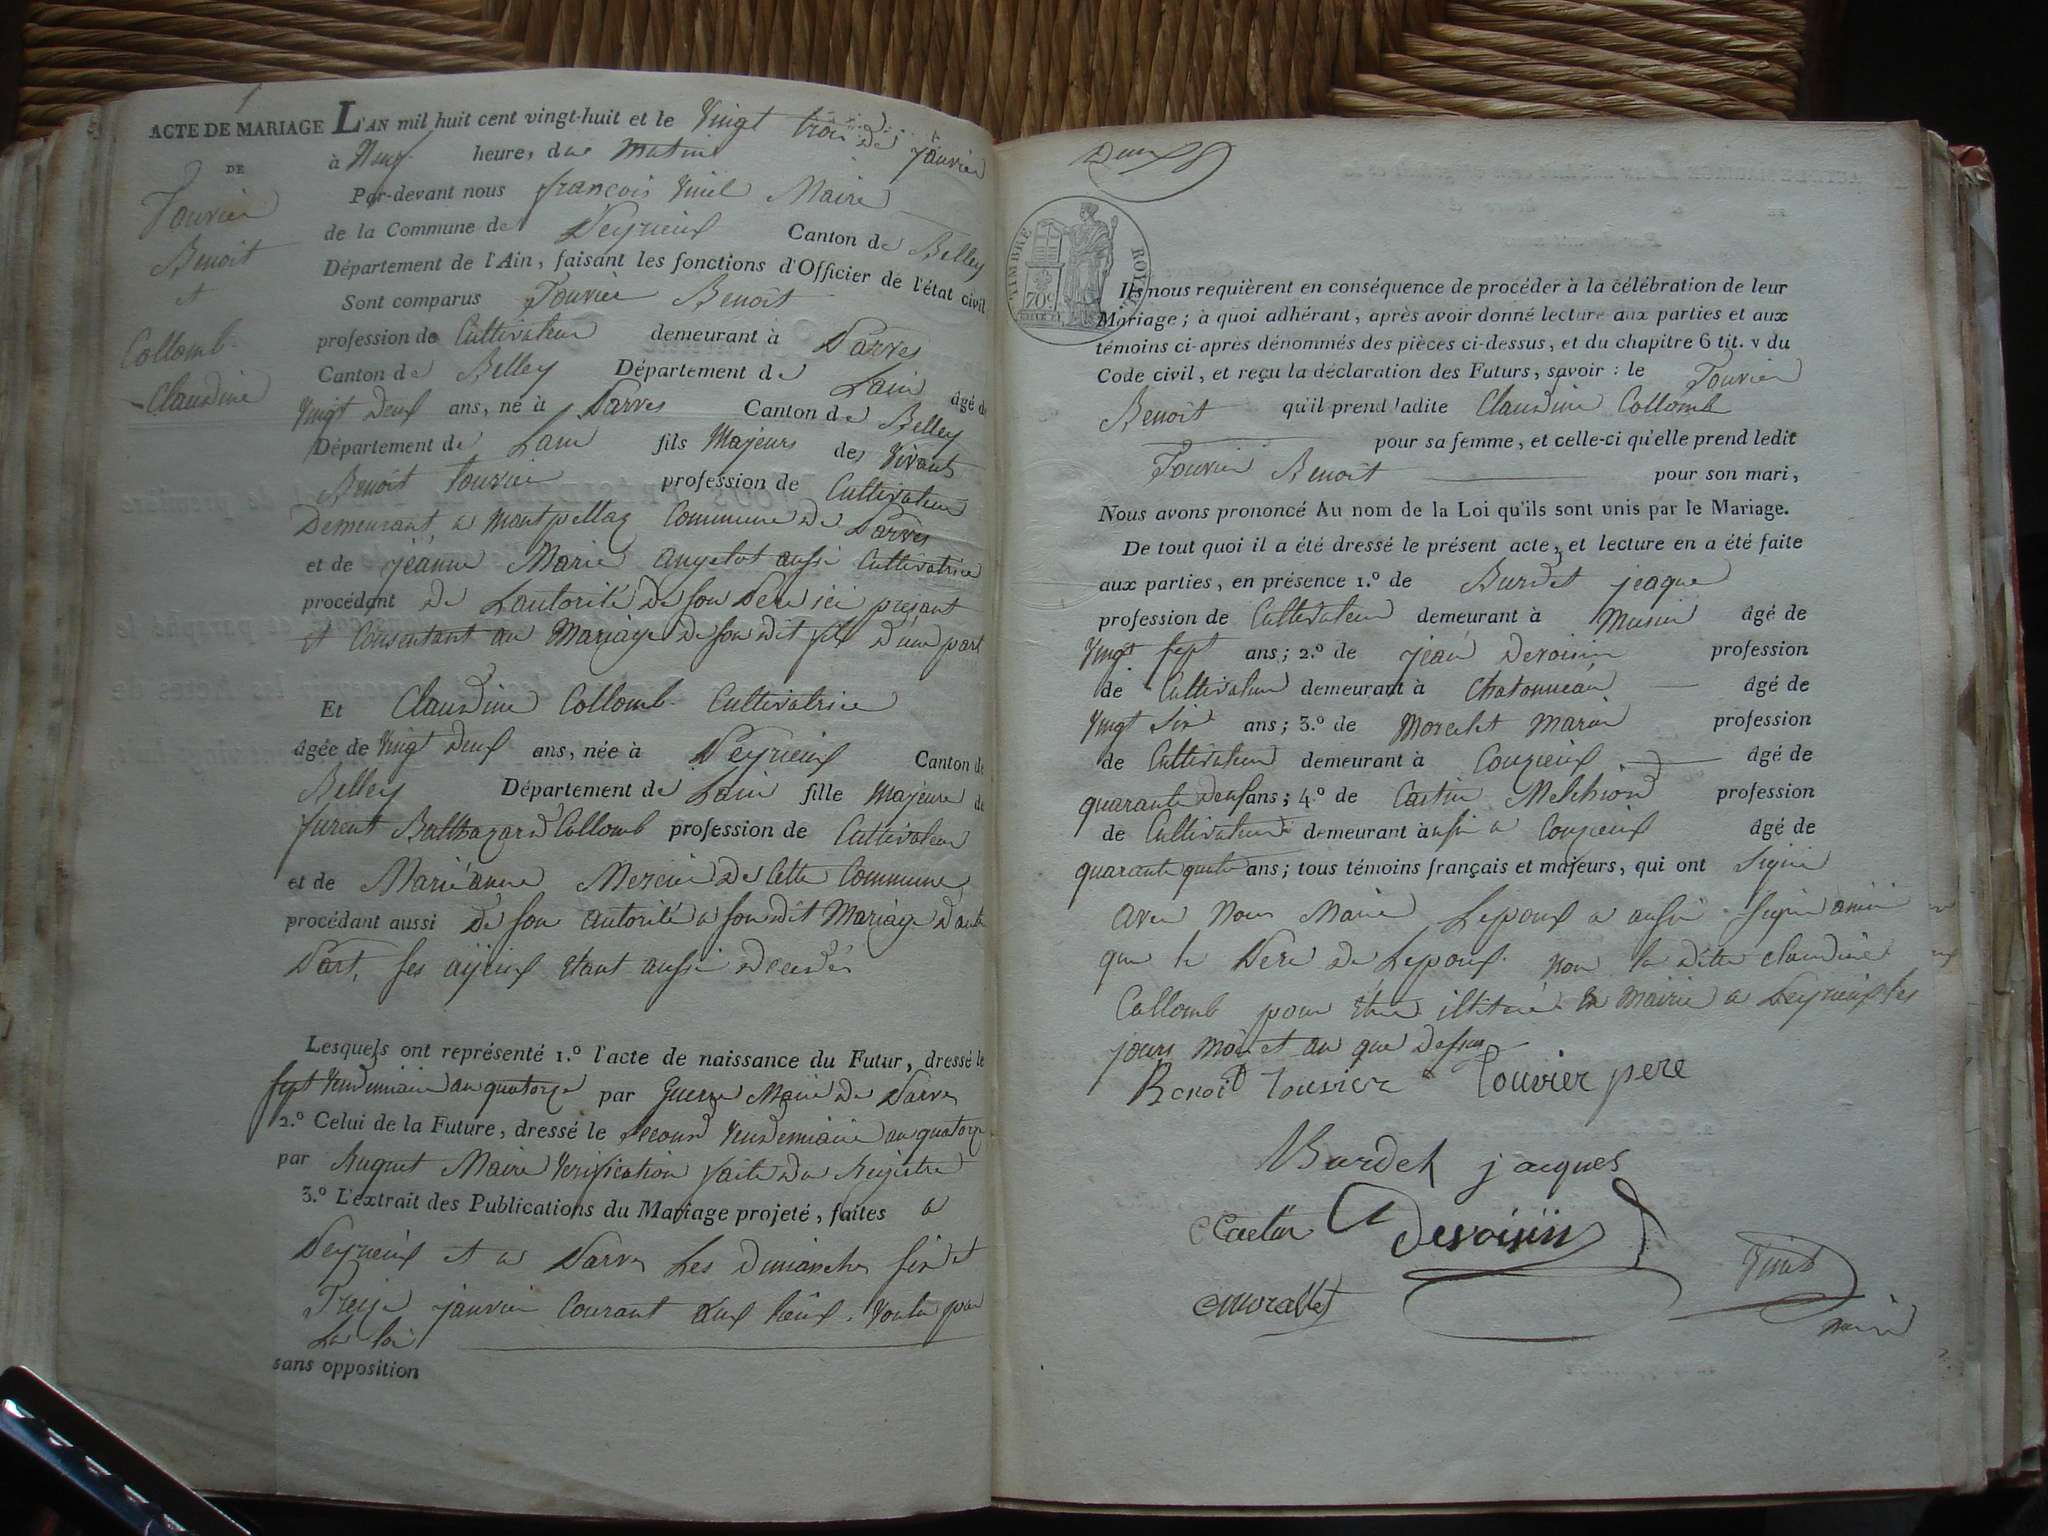 1
ACTE DE MARIAGE
DE
Touvier
Benoit
et
Collomb
Claudine
L'AN mil huit cent vingt-huit et le Vingt trois de janvier
à Neuf heure, due matin
Par-devant nous françois Maire
de la Commune de Peyrieux Canton de Belley
Département de l'Ain, faisant les fonctions d'Officier de l'état civil
Sont comparus Touvier Benoit
profession de Cultivateur demeurant à Parves
Canton de Belley Département de Lain âgé de
Vingt Deux ans, né à Parves Canton de Belley
Département de Lain fils Majeurs des Vivants
Benoit touvier profession de Cultivateur
Demeurant a montpellaz Commune de Parves
et de jeanne Marie angelot aussi Cultivatrice
procédant de Lautorité de son Pere ici présant
et Consentant au Mariage de son dit fils d'une part
Et Claudine Collomb Cultivatrice
âgée de Vingt Deux ans, née à Peyrieux Canton de
Belley Département de Lain fille majeure de
furent Balthazard Collomb profession de Cultivateur
et de Marieanne Mercier de Cette Commune
procédant aussi de son autorité a son dit Mariage D'autre
Part, ses ayeux etant aussi decedés
Lesquels ont représenté 1.º l'acte de naissance du Futur, dressé le
sept Vendemiaire an quatorze par Guerre Maire de Parves
2.º Celui de la Future, dressé le second Vendemiaire an quatorze
par Huguet Maire Verification faite du Registre
3.º L'extrait des Publications du Mariage projeté, faites a
Peyrieux et a Parves Les dimanches six et
Treize janvier Courant aux lieux voulu par
La loi
sans opposition
Deux
TIMBRE ROYAL
70c
Ils nous requièrent en conséquence de procéder à la célébration de leur
Mariage; à quoi adhérant, après avoir donné lecture aux parties et aux
témoins ci-après dénommés des pièces ci-dessus, et du chapitre 6 tit. v du
Code civil, et reçu la déclaration des Futurs, savoir: le Touvier
Benoit qu'il prend ladite Claudine Collomb
pour sa femme, et celle-ci qu'elle prend ledit
Touvier Benoit pour son mari,
Nous avons prononcé Au nom de la Loi qu'ils sont unis par le Mariage.
De tout quoi il a été dressé le présent acte, et lecture en a été faite
aux parties, en présence 1.º de Burdet jeaque
profession de Cultivateur demeurant à Musin âgé de
Vingt sept ans; 2.º de jean Devoisin profession
de Cultivateur demeurant à Chatonneau âgé de
Vingt Six ans; 3.º de Morellet Marin profession
de Cultivateur demeurant à Couzieux âgé de
quarante deux ans; 4.º de Castin Melchiord profession
de Cultivateur demeurant à ausi a Couzieux âgé de
quarante quatre ans; tous témoins français et majeurs, qui ont Signé
avec Nous Maire Lepoux a aussi signé ainsi
que le Pere de Lepoux non la ditte claudine
Collomb pour être ilitéré En Mairie a Peyrieux les
jours mois et an que dessus
Benoit touvier touvier pere
Burdet jacques
Devoisin
Morellet
maire